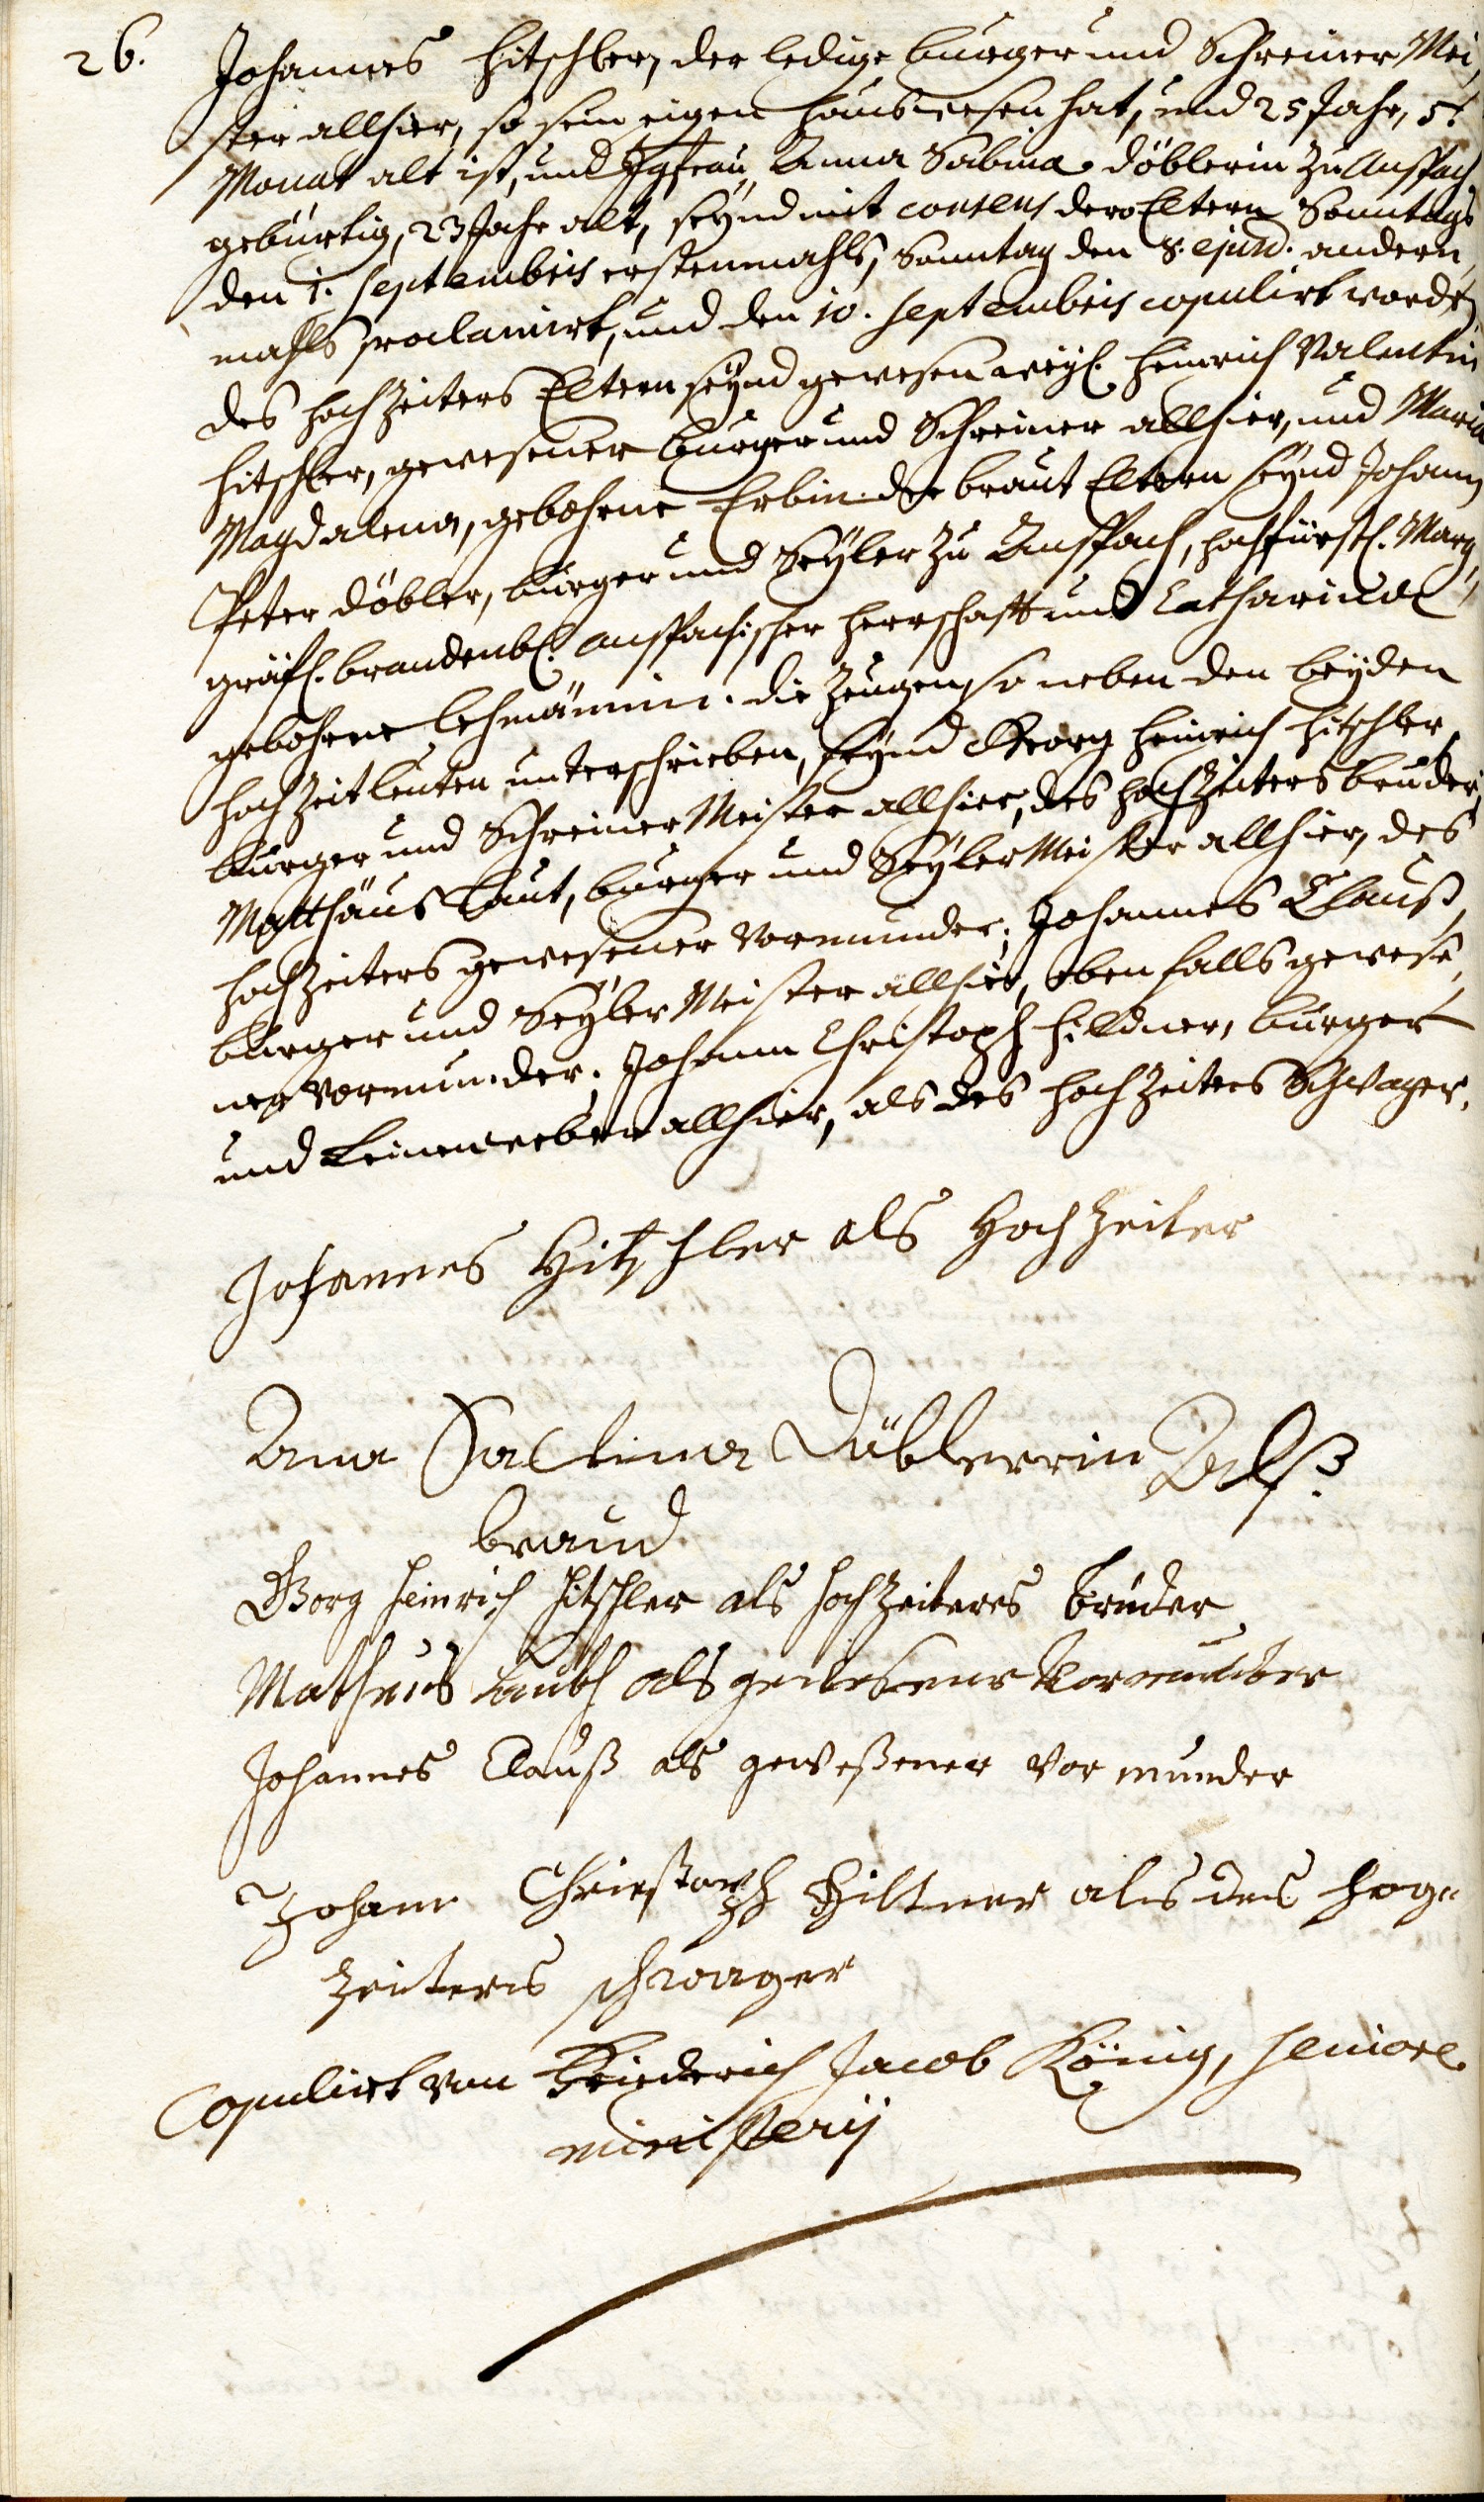 26. Johannes Hitschler, der ledige burger und Schreiner Mei„
ster allhier, so sein eigen hauswesen hat, und 25 Jahr, 5.
Monat alt ist, und Jgfrau Anna Sabina Döblerin zu Anspach
gebürtig, 23 Jahr alt, seynd mit consens dero Eltern Sonntags
den 1. Septembris erstenmahls, Sonntag den 8. ejusd. andern„
mahls proclamirt, und den 10. Septembris copulirt worden.
des hochzeiters Eltern seynd gewesen weyl. Heinrich Valentin
Hitschler, gewesener burger und Schreiner allhier, und Maria
Magdalena, gebohrne Erbin. der braut Eltern seynd Johann
Peter Döbler, burger und Seyler zu Anspach, hochfürstl. Marg„
gräfl. brandenbl. anspachischer herrschafft und Catharina
gebohrne Lehmännin. die Zeugen, so neben den beyden
hochzeitleuten unterschrieben, seynd Georg Heinrich Hitschler,
burger und Schreiner Meister allhier, des hochzeiters bruder,
Matthäus Laut, burger und Seyler Meister allhier, des
hochzeiters gewesener Vormunder; Johannes Clauß,
burger und Seyler Meister allhier, ebenfalls gewese„
ner Vormunder; Johann Christoph Hildner, burger
und Leineweber allhier, als des hochzeiters Schwager.
Johannes Hitschler als Hoch Zeiter
Ana Sabina Däblerrin Alß
braud
Georg Heinrich Hitschler als hochzeiters bruder
Matheus Lauth als gewesener Vormunder
Johannes Clauß als geweßener Vor munder
Johann Christoph Hiltner als des hog„
zeiters schwager
Copulirt von Friederich Jacob König, Seniore
ministerij